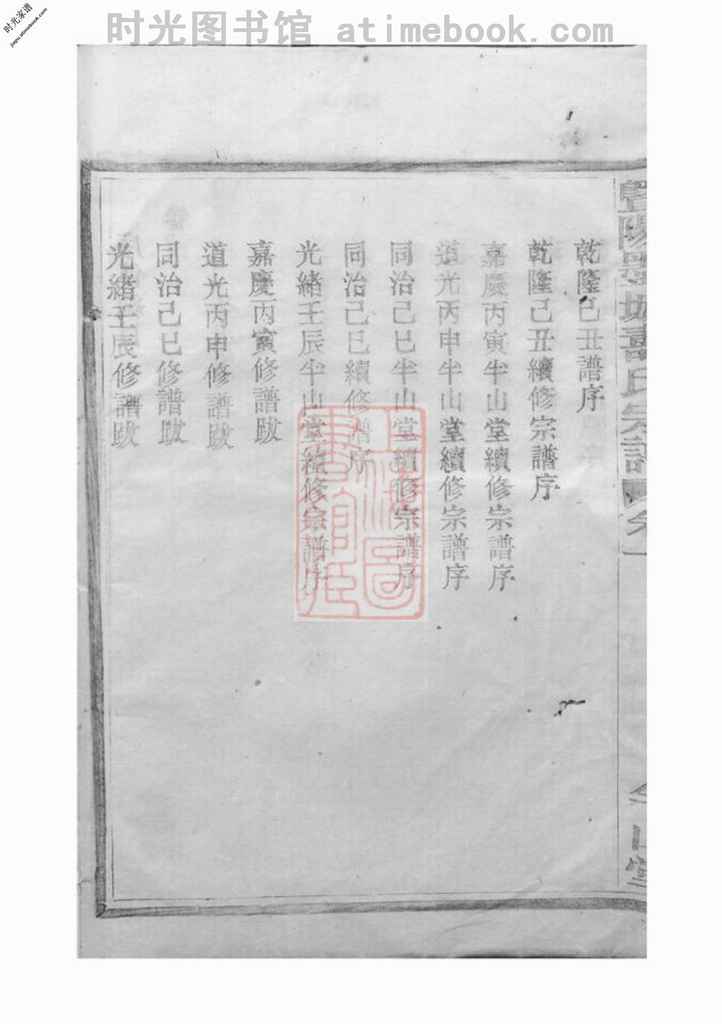 时光图书馆 atimebook.com
时光家谱
jiapu.atimebook.com
乾隆己丑譜序
乾隆己丑續修宗譜序
嘉慶丙寅半山堂續修宗譜序
道光丙申半山堂續修宗譜序
同治己巳半山堂續修宗譜序
同治己巳續修譜序
光緒壬辰半山堂續修宗譜序
嘉慶丙寅修譜跋
道光丙申修譜跋
同治己巳修譜跋
光緒壬辰修譜跋